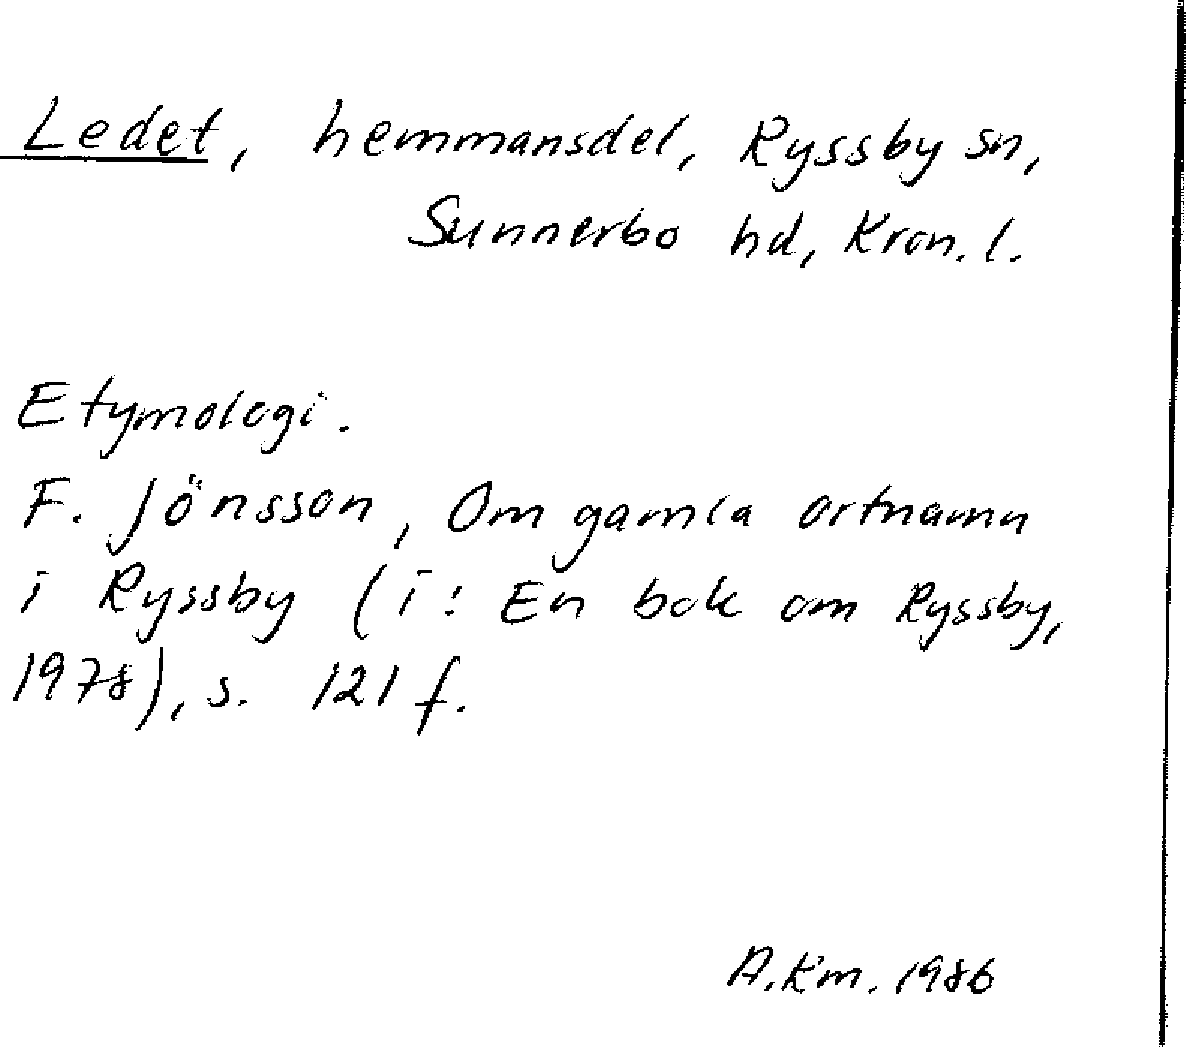 Ledet, hemmansdel, Ryssby sn,
Sunnerbo hd, Kron. l.
Etymologi.
F. Jönsson, Om gamla ortnamn
i Ryssby (i: En bok om Ryssby,
1978), s. 121 f.
A.Km. 1986